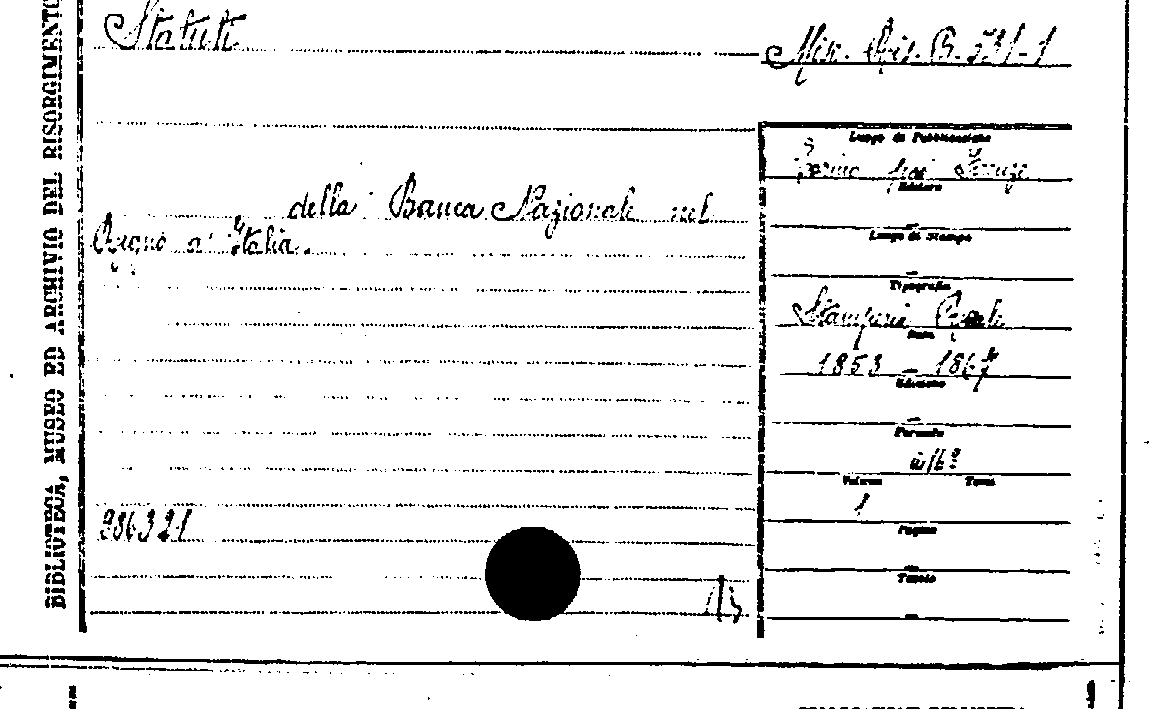 BIBLIOTECA, MUSEO ED ARCHIVIO DEL RISORGIMENTO
Statuti
Misc. Ris. B. 231-1
della Banca Nazionale nel
Regno d'Italia.
Luogo di Pubblicazione
Torino Firenze
Editore
Luogo di Stampa
Tipografia
Stamperia Reale
Data
1853 - 1867
Edizione
Formato
in 16º
Volume Tomi
1
Pagine
Tavole
986321